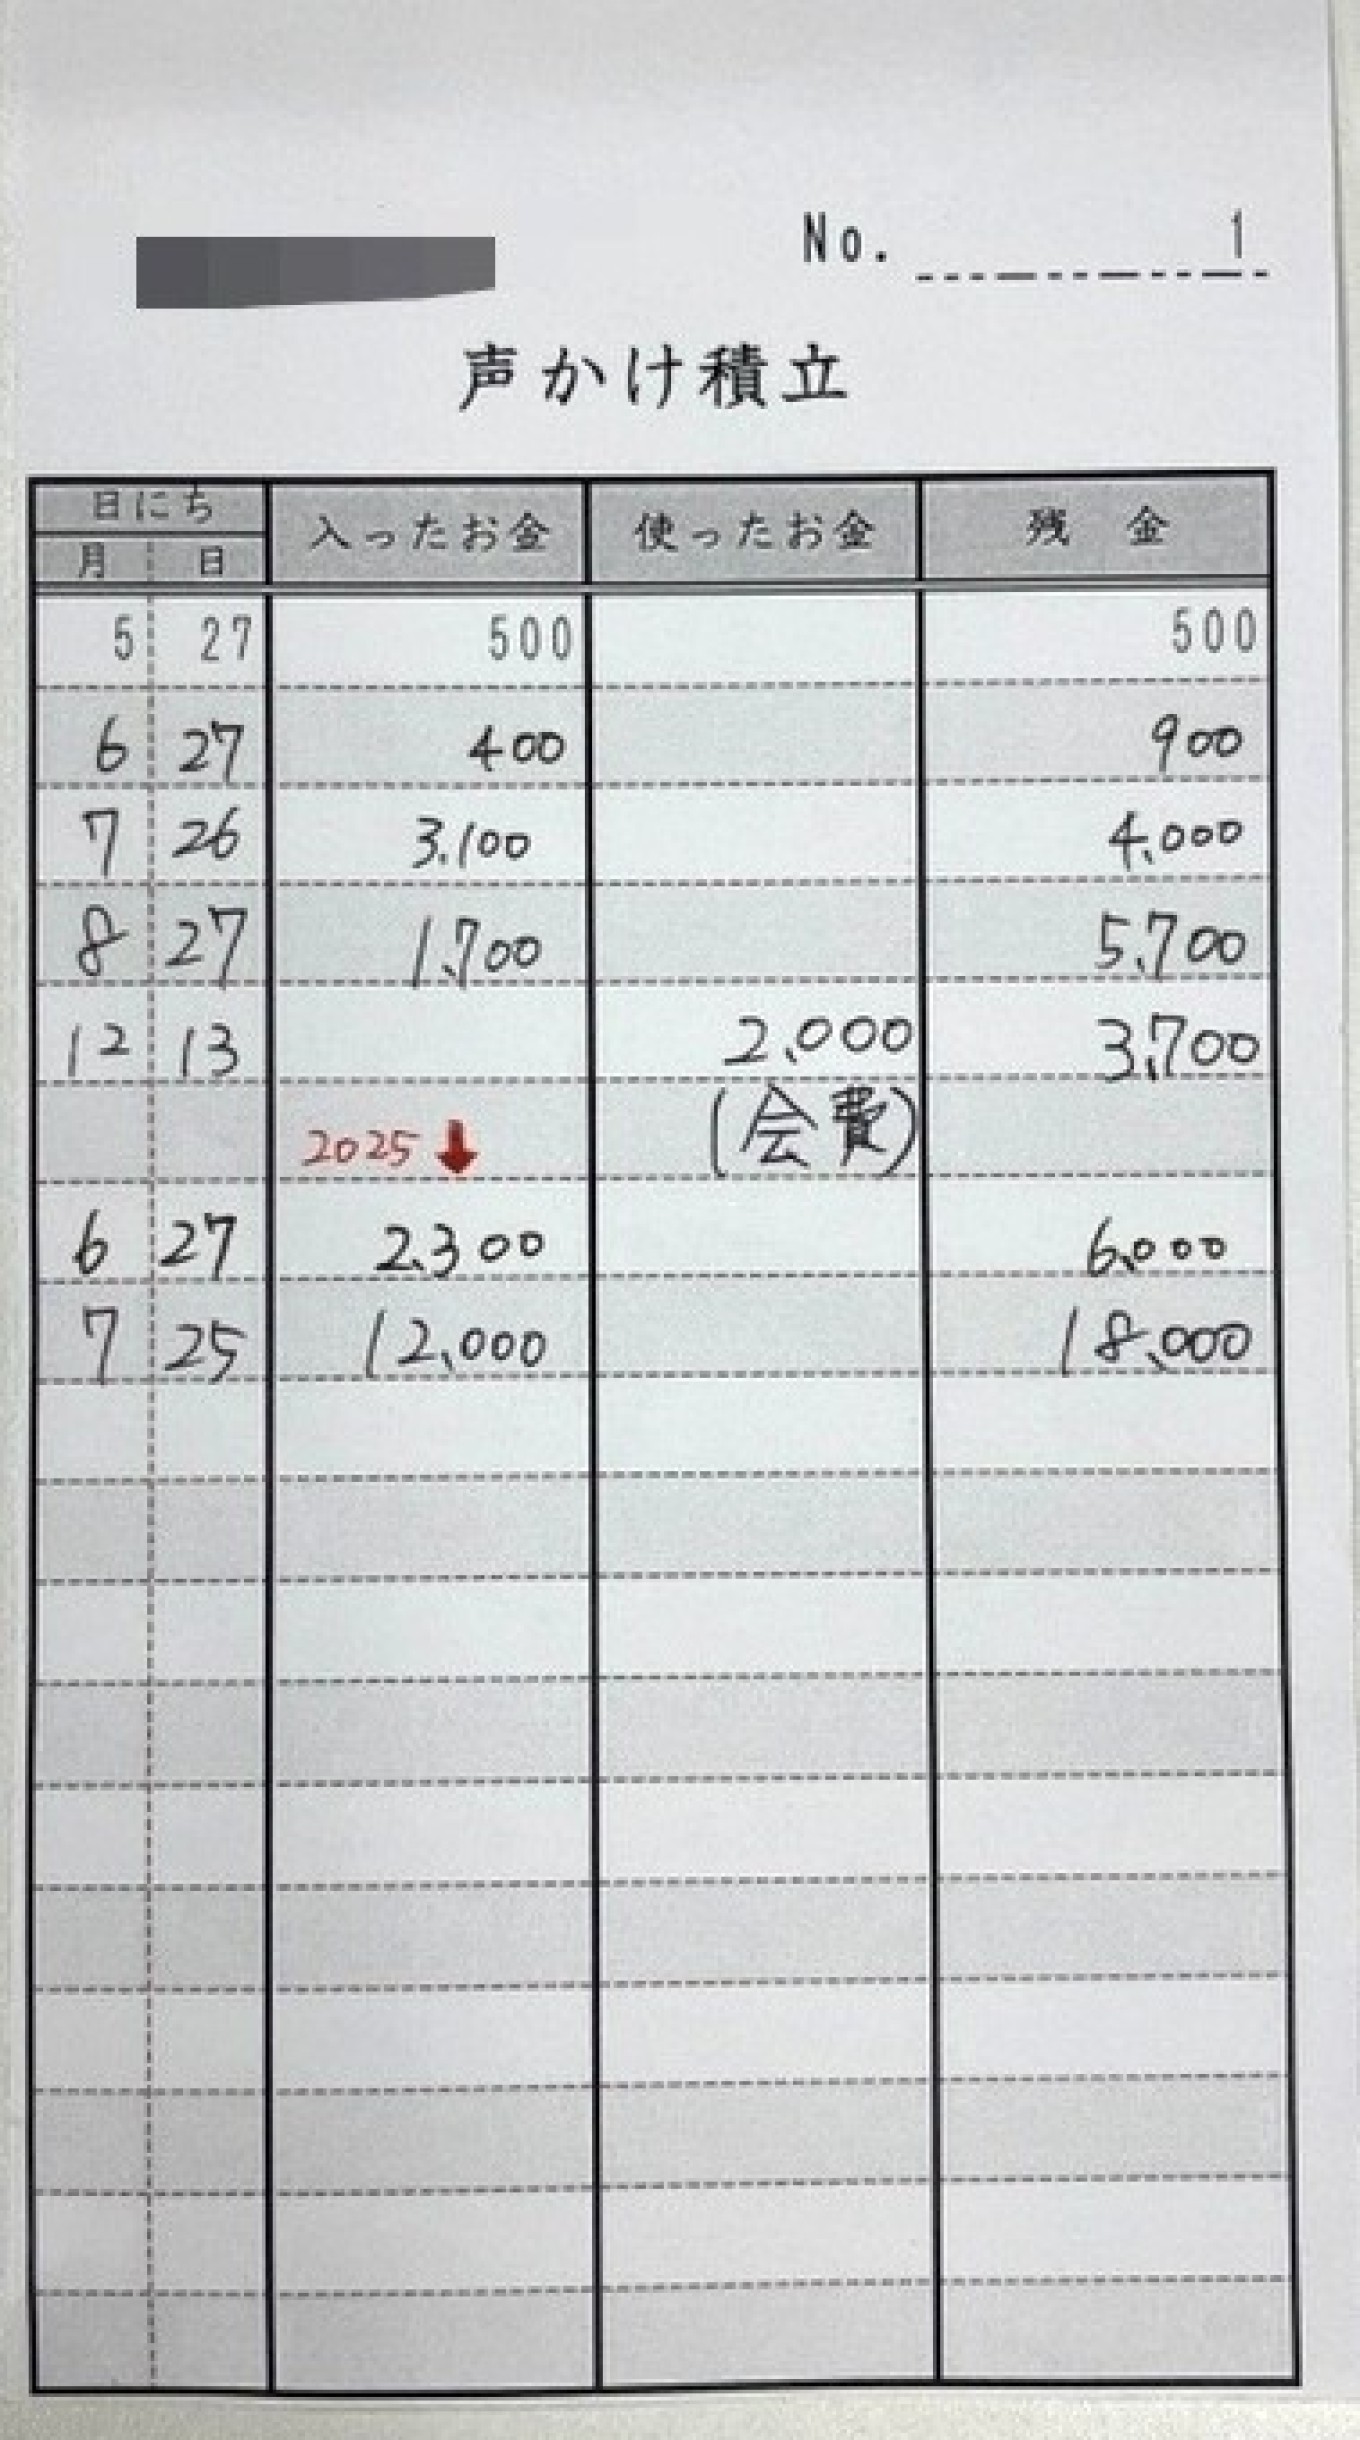 No. 1
声かけ積立
日にち 入ったお金 使ったお金 残 金
月 日
5 27 500 500
6 27 400 900
7 26 3,100 4,000
8 27 1,700 5,700
12 13 2,000 3,700
2025 ↓ (会費)
6 27 2,300 6,000
7 25 12,000 18,000